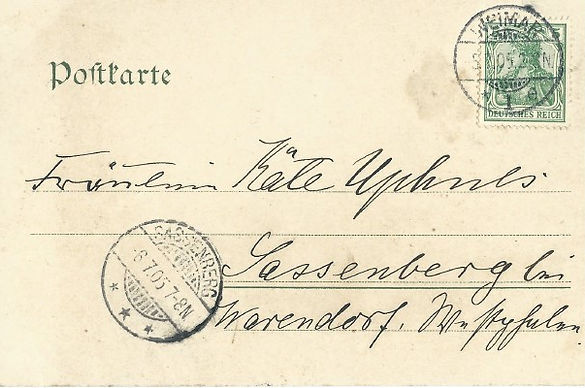 Postkarte
WEIMAR
05.
N
1
DEUTSCHES REICH
Fräulein Käte Uphues
Sassenberg bei
Warendorf, Westfalen
SASSENBERG
6.7.05 7-8N